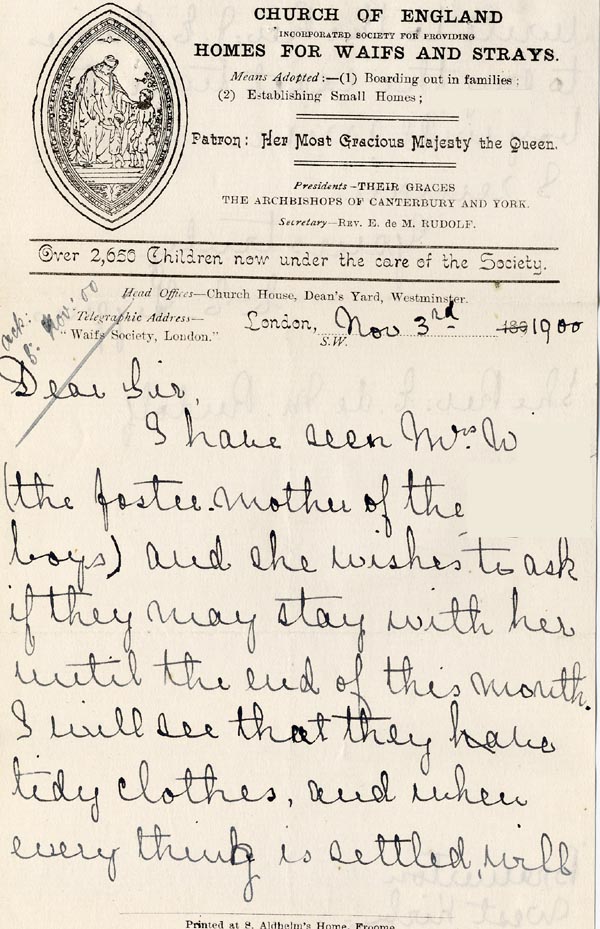 CHURCH OF ENGLAND
INCORPORATED SOCIETY FOR PROVIDING
HOMES FOR WAIFS AND STRAYS.
Means Adopted:—(1) Boarding out in families;
(2) Establishing Small Homes;
Patron: Her Most Gracious Majesty the Queen.
Presidents—THEIR GRACES
THE ARCHBISHOPS OF CANTERBURY AND YORK.
Secretary—REV. E. de M. RUDOLF.
Over 2,650 Children now under the care of the Society.
Head Offices—Church House, Dean's Yard, Westminster.
ack:
8. Nov: 00
Telegraphic Address—
"Waifs Society, London."
London, Nov 3rd 189 1900
S.W.
Dear Sir,
I have seen Mrs W
(the foster mother of the
boys) and she wishes to ask
if they may stay with her
until the end of this month.
I will see that they have
tidy clothes, and when
every thing is settled, will
Printed at S. Aldhelm's Home, Froome.